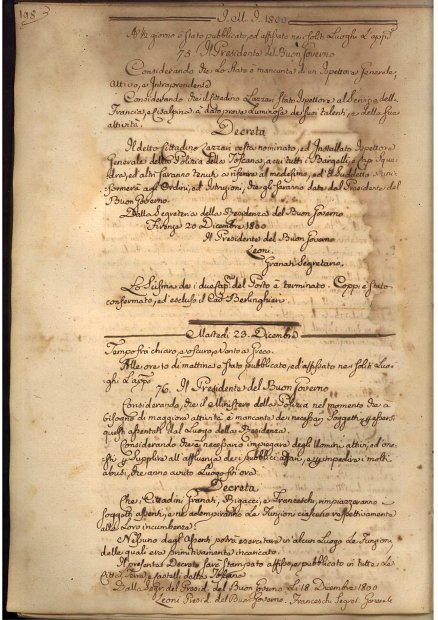 198
J. M. J. 1800
A' giorno è stato pubblicato, ed affissato nei soliti Luoghi L'appso
75 Il Presidente del Buon Governo
Considerando che lo Stato è mancante di un Ispettore Generale,
Attivo, e Intraprendente
Considerando che il Cittadino Lazzari stato Ispettore al Seguito della
Francia, e Cisalpina à dato prove Luminose dei suoi talenti, e della sua
attività.
Decreta
Il detto Cittadino Lazzari resta nominato, ed Installato Ispettore
Generale della Polizia della Toscana, a cui tutti i Bargelli, e Capi Squa-
dra, ed altri saranno tenuti a riferire al medesimo, ed il suddetto si uni-
formerà agli Ordini, ed Istruzioni, che gli saranno date dal Presidente del
Buon Governo.
Dalla Segreteria della Presidenza del Buon Governo
Firenze 20 Decembre 1800
Il Presidente del Buon Governo
Leoni.
Granati Segretario.
Lo Scisma dei due del Porto è terminato. Coppi è stato
confermato, ed escluso il Cav. Berlinghieri.
Martedì 23. Decembre
Tempo frà chiaro, e oscuro, Vento a Greco.
Alle ore 10 di mattina è stato pubblicato, ed affissato nei soliti Luo-
ghi L'appso
76. Il Presidente del Buon Governo
Considerando, che il Ministero della Polizia nel momento che à
bisogno di maggiore attività è mancante dei necessarj Soggetti, essersi
questi assentati dal Luogo della Residenza.
Considerando che è necessario impiegare degli Uomini attivi, ed one-
sti, per supplire all' affluenza dei pubblici affari, e per impedire i molti
abusi, che anno avuto Luogo fin ora.
Decreta
Che i Cittadini Granati, Bigacci, e Franceschi, rimpiazzeranno i
Soggetti assenti, e ne adempiranno Le Funzioni ciascuno respettivamente
alla Loro incumbenza.
Nessuno degli Assenti potrà esercitare in alcun Luogo Le Funzioni,
delle quali era primitivamente incaricato.
Il presente Decreto sarà stampato affisso, e pubblicato in tutte Le
Città, Terre, e Castelli della Toscana
Dalla Segr. del Presid. del Buon Governo Li 18 Decembre 1800
Leoni Presid. del Buon Governo. Franceschi Segret. Generale